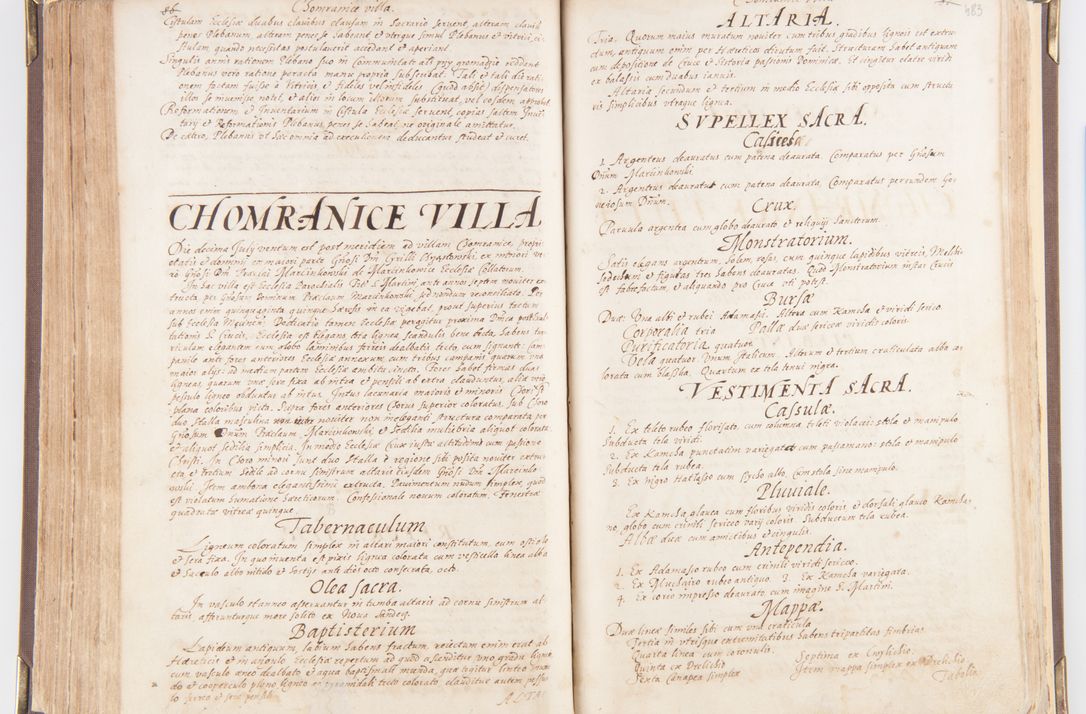 86
Chomranice villa.
Cistulam Ecclesiæ duabus clavibus clausam in Sacrario servent, alteram clavim
penes Plebanum, alteram penes se habeant et uterque simul Plebanus et vitrici, ci-
stulam quando necessitas postulaverit accedant et aperiant.
Singulis annis rationem Plebano suo in Communitat: als przy gromadzie reddent
Plebanus vero ratione peracta manu propria subscribat. Tali et tali die rati-
onem factam fuisse à vitricis, et fideles vel infideles (quod absit) dispensatores
illos se invenisse notet, et alios in locum illorum substituat, vel eosdem approbet
Reformationem et Inventarium in Cistula Ecclesiæ servent, copias saltem Inven-
tarij et Reformationis Plebanus penes se habeat ne originale amittatur.
De cætero, Plebanus ut hæc omnia ad executionem deducantur studeat et curet.
CHOMRANICE VILLA
Die decima July ventum est post meridiem ad villam Chomranice propri-
etatis et dominij ex maiori parte Gnosi Dni Cyrilli Chrząstowski ex minori ve-
rò Gnosi Dni Præclai Marcinkowski de Marcinkowice Ecclesiæ Collatorum.
In hac villa est Ecclesia Parochialis Tit: S. Martini, ante annos septem noviter ex-
tructa per Gnosum Dominum Præclaum Marcinkowski, sed nondum reconsiliata. Per
annos enim quinquaginta quinque hæresis in ea vigebat, prout superius tactum
sub Ecclesia Mecinen: Dedicatio tamen Ecclesiæ peragitur proxima Dnica post Exal-
tationis S. Crucis. Ecclesia est elegans, tota lignea scandulis bene tecta, habens tur-
riculam elegantem cum globo laminibus ferreis dealbatis tecto, cum signanti: cam-
panile ante fores anteriores Ecclesiæ annexum, cum tribus campanis quarum una
maior alijs: ad mediam partem Ecclesiæ ambitu cincto. Fores habet firmas duas
ligneas, quarum unæ sera fixa ab intra et pensili ab extra clauduntur, aliæ vero
pessulo ligneo obduntur ab intus. Intus lacunaria maioris et minoris Chori
plana coloribus picta. Supra fores anteriores Chorus superior coloratus, sub Choro
duo Stalla masculina noviter non ineleganti structura comparata per
Gnosum Dnum Præclaum Marcinkowski, et sedilia muliebria aliquot colorata
et aliquot sedilia simplicia. In medio Ecclesiæ Crux iustæ altitudinis cum passione
Christi. In Choro minori sunt duo Stalla è regione sibi posita noviter extru-
cta et tertium Sedile ad cornu sinistrum altaris eiusdem Gnosi Dni Marcinko
wski. Item ambona elegantissimè extructa. Pavimentum nudum simplex, quod
est violatum humatione hæreticorum. Confessionale novum coloratum. Fenestræ
quadratæ vitreæ quinque.
Tabernaculum
Ligneum coloratum simplex in altari maiori constitutum, cum ostiolo
et sera fixa. In quo inventa est pixis lignea colorata cum vesticillo lineo albo
et sacculo albo nitido et hostijs ante dies octo consecratis, octo.
Olea sacra.
In vasculo stanneo asservantur in tumba altaris ad cornu sinistrum al-
taris afferunturque more solito ex Nova Sandecz.
Baptisterium
Lapideum antiquum, labium habens fractum, reiectum enim erat ab
Hæreticis et in angulo Ecclesiæ repertum ad quod ascenditur uno gradu ligneo
cum vasculo æneo dealbato et aqua baptismali munda, quæ tegitur linteo mun-
do et cooperculo plano ligneo ex pyramidali tecto colorato, clauditur autem pessu-
lo ferreo et sera pensili
ALTA-
483
ALTARIA.
Tria. Quorum maius muratum noviter cum tribus gradibus ligneis est extru-
ctum, antiquum enim per Hæreticos dirutum fuit. Structuram habet antiquam
cum depositione de Cruce et historia passionis Dominicæ. Et cingitur clatre viridi
ex balassis cum duabus ianuis.
Altaria secundum et tertium in medio Ecclesiæ sibi opposita cum structu-
ris simplicibus utraque lignea.
SVPELLEX SACRA.
Calices
1. Argenteus deauratus cum patena deaurata. Comparatus per Gnosum
Dnum Marcinkowski.
2. Argenteus deauratus cum patena deaurata, Comparatus per eundem Ge-
nerosum Dnum.
Crux.
Parvula argentea cum globo deaurato et reliquijs Sanctorum.
Monstratorium.
Satis elegans argenteum, solem, rosas, cum quinque lapidibus vitreis, Melchi-
sedechum et figuras tres habens deauratas. Quod Monstratorium instar Crucis
est fabrefactum, et aliquando pro Cruce uti potest.
Bursæ
Duæ: Una albi et rubei Adamasci. Altera cum Kamcha et viridi serico.
Corporalia tria Pallæ duæ sericeæ viridis coloris.
Purificatoria quatuor
Vela quatuor. Unum Italicum. Alterum et tertium craticulata alba co-
lorata cum blaszka. Quartum ex tela tenui nigra.
VESTIMENTA SACRA.
Casulæ.
1. Ex teleto rubeo florisato, cum columna teleti violacei: stola et manipulo
Subducta tela viridi.
2. Ex Kamcha punctatim variegata cum passamano: stola et manipulo
Subducta tela rubea.
3. Ex nigro Hatlasso cum sycho albo, cum stola sine manipulo.
Pluviale.
Ex Kamcha glauca cum floribus viridis coloris et dorsali glauco Kamcha-
no, globo cum crinili sericeo varij coloris. Subductum tela rubea.
Albæ duæ cum amictibus et cingulis.
Antependia.
1. Ex Adamasso rubeo cum crinili viridi sericeo.
2. Ex Muchairo rubeo antiquo. 3. Ex Kamcha variegata.
4. Ex corio impresso deaurato cum imagine S. Martini.
Mappæ.
Duæ lineæ similes sibi cum una craticula
Tertia in utrisque extremitatibus habens tripartitas fimbrias.
Quarta linea cum coronulis.
Quinta ex Drelichio
Sexta canapea simplex
Septima ex Cwylichio.
Item mappa simplex ex Drelichio.
Tobalia